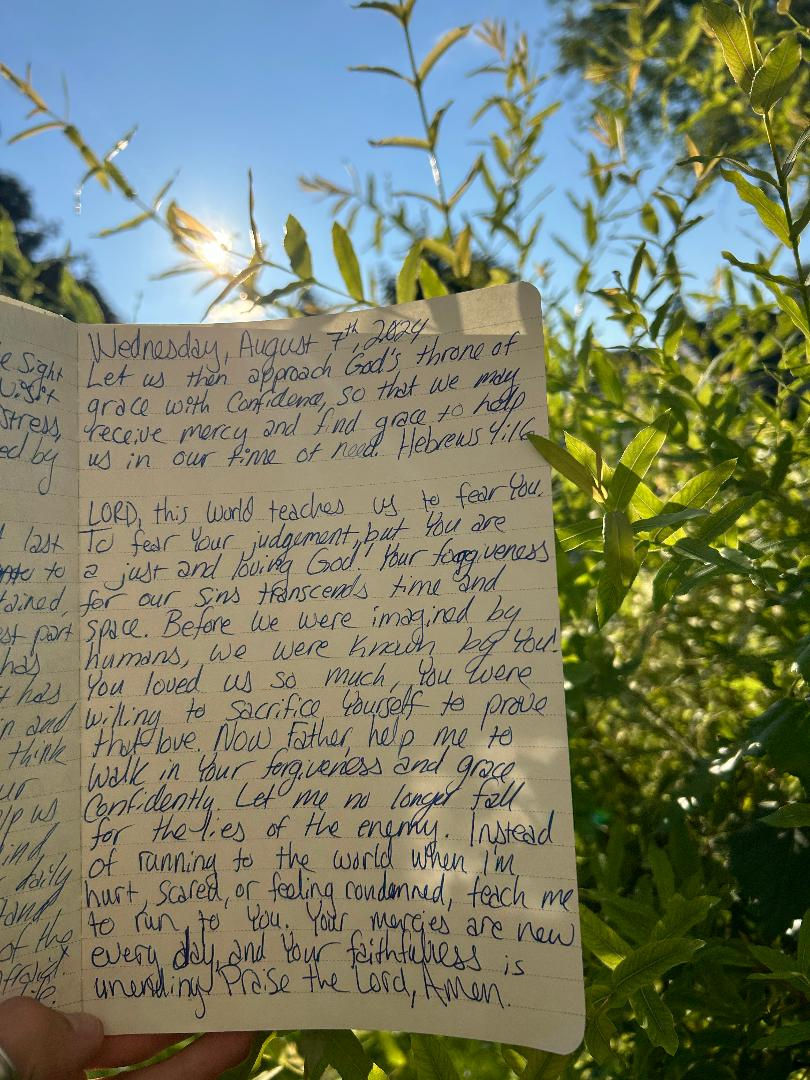 e sight
stress,
ed by
last
to
tained,
est part
has
t has
n and
think
ur
lp us
ind,
daily
and
of the
Wednesday, August 7th, 2024
Let us then approach God's throne of
grace with confidence, so that we may
receive mercy and find grace to help
us in our time of need. Hebrews 4:16
LORD, this world teaches us to fear You.
To fear Your judgement, but You are
a just and loving God! Your forgiveness
for our sins transcends time and
space. Before we were imagined by
humans, we were known by You!
You loved us so much, You were
willing to sacrifice Yourself to prove
that love. Now Father, help me to
walk in Your forgiveness and grace
confidently. Let me no longer fall
for the lies of the enemy. Instead
of running to the world when I'm
hurt, scared, or feeling condemned, teach me
to run to You. Your mercies are new
every day, and Your faithfulness is
unending. Praise the Lord, Amen.